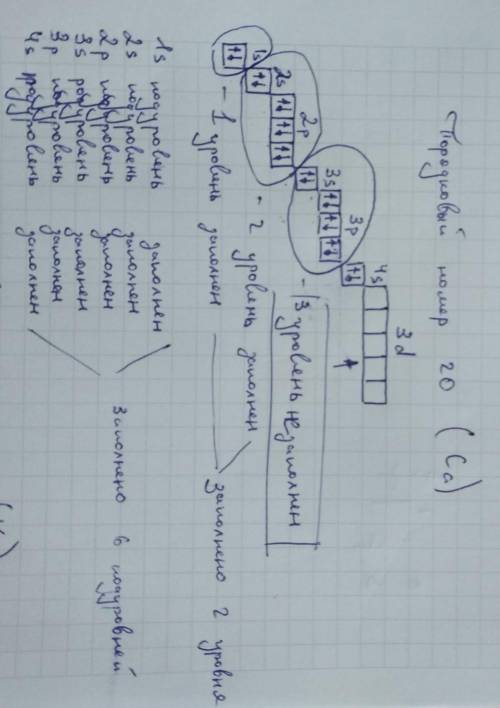 Порядковый номер 20 (Ca)
3d
4s
3p
3s
2p
2s
1s
- 3 уровень не заполнен
- 2 уровень заполнен
- 1 уровень заполнен
заполнено 2 уровня
1s подуровень заполнен
2s подуровень заполнен
2p подуровень заполнен
3s подуровень заполнен
3p подуровень заполнен
4s подуровень заполнен
заполнено 6 подуровней